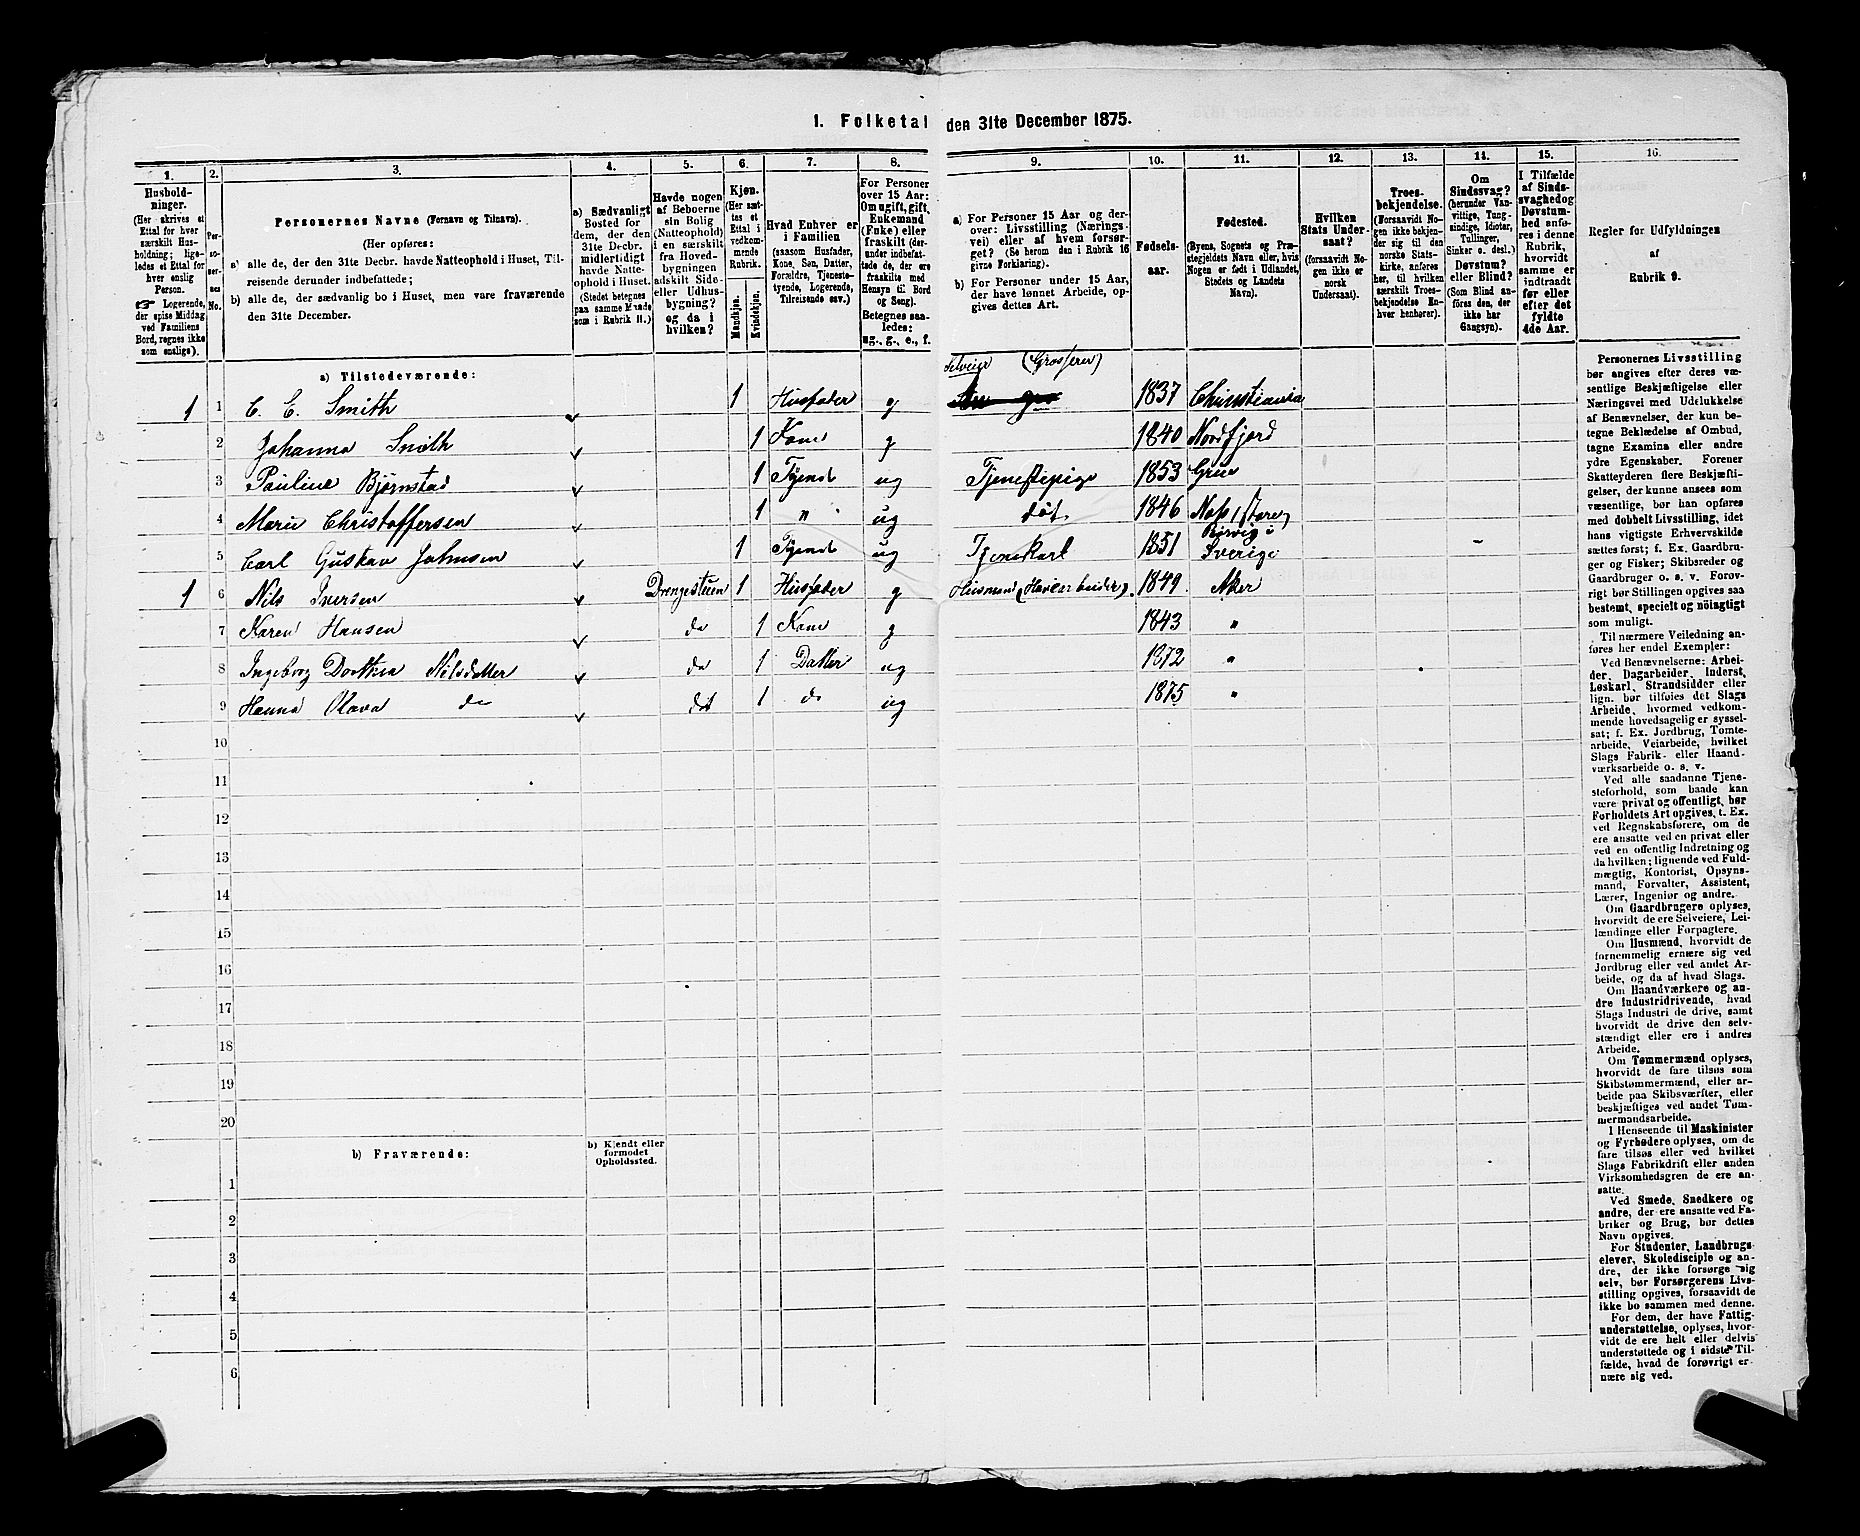 1. Folketal den 31te December 1875.
1. 2. 3. 4. 5. 6. 7. 8. 9. 10. 11. 12. 13. 14. 15. 16.
Husholdninger.
(Her skrives et
Ettal for hver
særskilt Husholdning;
ligeledes et Ettal for
hver enslig
Person.
☞ Logerende,
der spise Middag
ved Familiens
Bord, regnes ikke
som enslige).
Personernes No.
Personernes Navne (Fornavn og Tilnavn).
(Her opføres:
a) alle de, der den 31te Decbr. havde Natteophold i Huset, Tilreisende
derunder indbefattede;
b) alle de, der sædvanlig bo i Huset, men vare fraværende
den 31te December.
a) Sædvanligt
Bosted for
dem, der den
31te Decbr.
midlertidigt
havde Natteophold
i Huset.
(Stedet betegnes
paa samme Maade
som i Rubrik 11.)
Havde nogen
af Beboerne
sin Bolig
(Natteophold)
i en særskilt
fra Hovedbygningen
adskilt Side-
eller Udhusbygning?
og da i
hvilken?
Kjøn.
(Her sættes et
Ettal i
vedkommende
Rubrik.
Mandkjøn.
Kvindekjøn.
Hvad Enhver er
i Familien
(saasom Husfader,
Kone, Søn, Datter,
Forældre, Tjenestetyende,
Logerende,
Tilreisende osv.)
For Personer
over 15 Aar:
Om ugift, gift,
Enkemand
(Enke) eller
fraskilt (derunder
indbefattede de, der ere
fraskilte med
Hensyn til Bord
og Seng).
Betegnes saaledes:
ug., g., e., f.
a) For Personer 15 Aar og derover:
Livsstilling (Næringsvei)
eller af hvem forsørget?
(Se herom den i Rubrik 16
givne Forklaring).
b) For Personer under 15 Aar,
der have lønnet Arbeide, opgives
dettes Art.
Fødselsaar.
Fødested.
(Byens, Sognets og Præstegjeldets
Navn eller, hvis
Nogen er født i Udlandet,
Stedets og Landets
Navn).
Hvilken
Stats Undersaat?
(forsaavidt Nogen
ikke er
norsk
Undersaat).
Troesbekjendelse.
(Forsaavidt Nogen
ikke bekjender
sig til den
norske Statskirke,
anføres
her, til hvilken
særskilt Troesbekjendelse
Enhver
henhører).
Om
Sindssvag?
(herunder Vanvittige,
Tungsindige,
Idioter,
Tullinger,
Sinker o. desl.)
Døvstum?
eller Blind?
(Som Blind anføres
den, der
ikke har
Gangsyn).
I Tilfælde
af Sindssvaghed og
Døvstumhed
anføres
i denne
Rubrik,
hvorvidt
samme er
indtraadt
før eller
efter det
fyldte
4de Aar.
Regler for Udfyldningen
af
Rubrik 9.
a) Tilstedeværende:
Selveier (Grosserer)
1 1 C. C. Smith 1 Husfader g 1837 Christiania
2 Johanna Smith 1 Kone g 1840 Nordfjord
3 Pauline Bjørnstad 1 Tyende ug Tjenestepige 1853 Grue
4 Marie Christoffersen 1 " ug dot 1846
5 Carl Gustav Johnsen 1 Tyende ug Tjenestkarl 1851 Sverige
1 6 Nils Iversen Drengestuen 1 Husfader g Husmand (Havearbeider). 1849 Aker
7 Karen Hansen do 1 Kone g 1843 "
8 Ingeborg Dorthea Nilsdatter do 1 Datter ug 1872 "
9 Hanna Olava do dot 1 do ug 1875 "
10
11
12
13
14
15
16
17
18
19
20
b) Fraværende:
b) Kjendt eller
formodet
Opholdssted.
1
2
3
4
5
6
Personernes Livsstilling
bør angives efter deres væsentlige
Beskjæftigelse eller
Næringsvei med Udelukkelse
af Benævnelser, der kun betegne
Beklædelse af Ombud,
tagne Examina eller andre
ydre Egenskaber. Forener
Skatteyderen flere Beskjæftigelser,
der kunne ansees som
væsentlige, bør han opføres
med dobbelt Livsstilling, idet
hans vigtigste Erhvervskilde
sættes først; f. Ex. Gaardbruger
og Fisker; Skibsreder og
Gaardbruger o. s. v. Forøvrigt
bør Stillingen opgives saa
bestemt, specielt og nöiagtigt
som muligt.
Til nærmere Veiledning anføres
her endel Exempler:
Ved Benævnelserne: Arbeider,
Dagarbeider, Inderst,
Løskarl, Strandsidder eller
lign. bør tilføies det Slags
Arbeide, hvormed vedkommende
hovedsagelig er sysselsat;
f. Ex. Jordbrug, Tomtearbeide,
Veiarbeide, hvilket
Slags Fabrik- eller Haandværksarbeide
o. s. v.
Ved alle saadanne Tjenesteforhold,
som baade kan
være privat og offentligt, bør
Forholdets Art opgives, t. Ex.
ved Regnskabsførere, om de
ere ansatte ved en privat eller
ved en offentlig Indretning og
da hvilken; lignende ved Fuldmægtig,
Kontorist, Opsynsmand,
Forvalter, Assistent,
Lærer, Ingeniør og andre.
Om Gaardbrugere oplyses,
hvorvidt de ere Selveiere, Leilændinge
eller Forpagtere.
Om Husmænd, hvorvidt de
fornemmelig ernære sig ved
Jordbrug eller ved andet Arbeide,
og da af hvad Slags.
Om Haandværkere og andre
Industridrivende, hvad
Slags Industri de drive, samt
hvorvidt de drive den selvstændigt
eller ere i andres
Arbeide.
Om Tømmermænd oplyses,
hvorvidt de fare tilsøs som
Skibstømmermænd, eller arbeide
paa Skibsværfter, eller
beskjæftiges ved andet Tømmermandsarbeide.
I Henseende til Maskinister
og Fyrbødere oplyses, om de
fare tilsøs eller ved hvilket
Slags Fabrikdrift eller anden
Virksomhedsgren de ere ansatte.
Ved Smede, Snedkere og
andre, der ere ansatte ved Fabriker
og Brug, bør dettes
Navn opgives.
For Studenter, Landbrugselever,
Skoledisciple og andre,
der ikke forsørge sig
selv, bør Forsørgerens Livsstilling
opgives, forsaavidt de
ikke bo sammen med denne.
For dem, der have Fattigunderstøttelse,
oplyses, hvorvidt
de ere helt eller delvis
understøttede og i sidste Tilfælde,
hvad de forøvrigt ernære
sig ved.